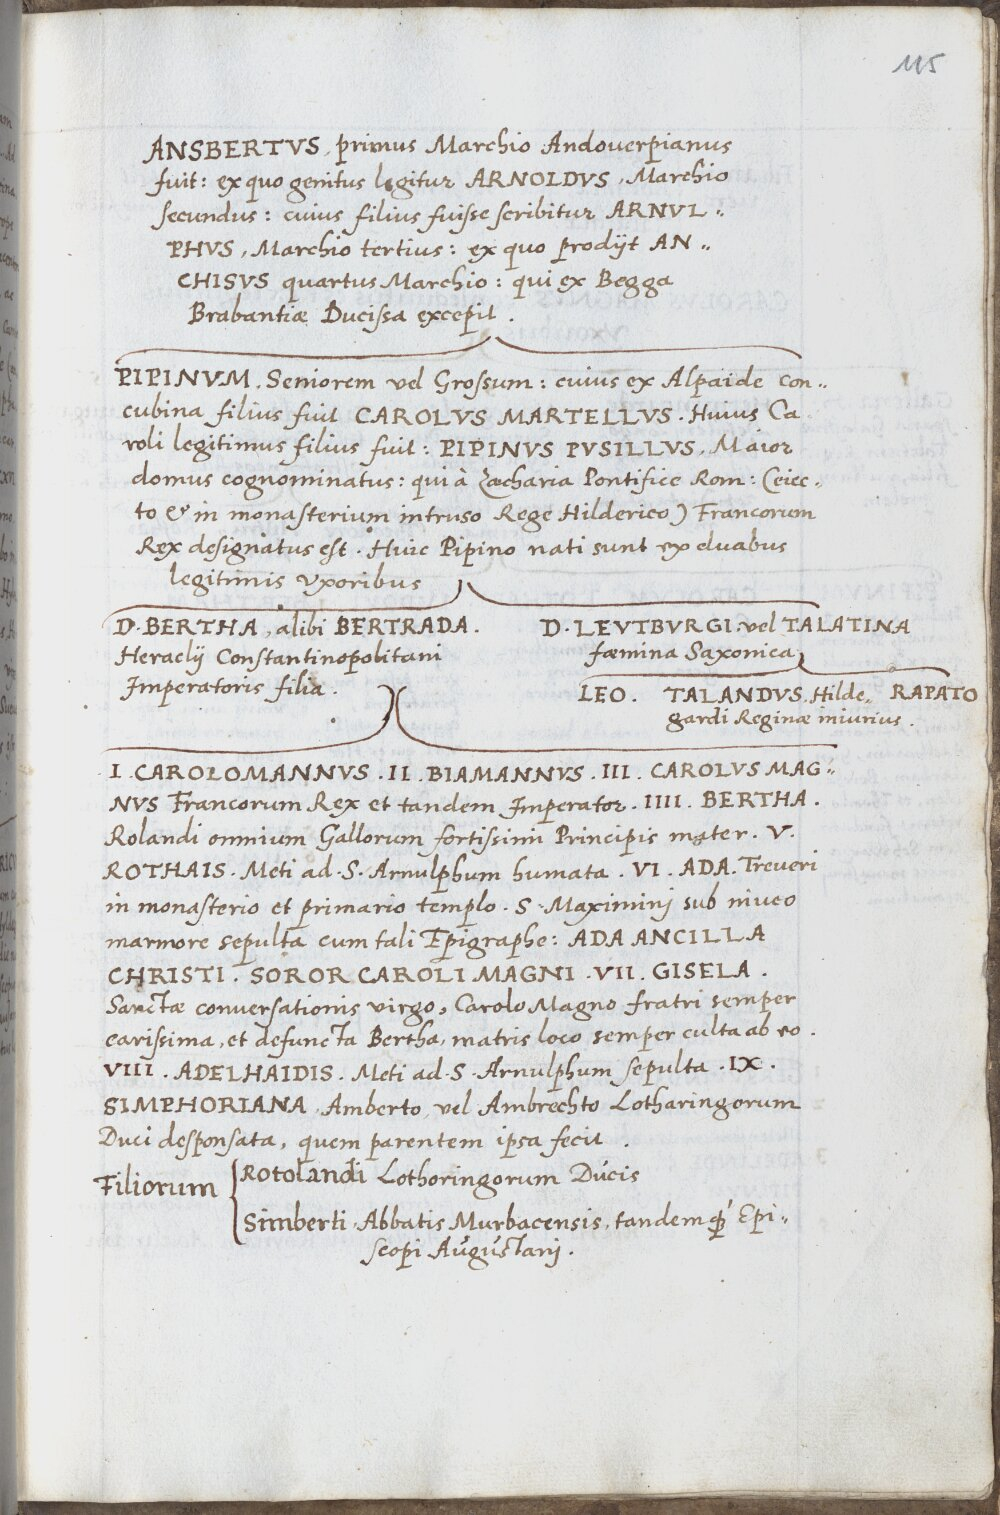 115
ANSBERTVS, primus Marchio Andouerpianus
fuit: ex quo genitus legitur ARNOLDVS, Marchio
secundus: cuius filius fuisse scribitur ARNVL„
PHVS, Marchio tertius: ex quo prodijt AN„
CHISVS quartus Marchio: qui ex Begga
Brabantiæ Ducissa excepit.
PIPINVM, Seniorem vel Grossum: cuius ex Alpaide con„
cubina filius fuit CAROLVS MARTELLVS. Huius Ca
roli legitimus filius fuit: PIPINVS PVSILLVS, Maior
domus cognominatus: qui à Zacharia Pontifice Rom: (eiec„
to & in monasterium intruso Rege Hilderico) Francorum
Rex designatus est. Huic Pipino nati sunt ex duabus
legitimis vxoribus
D. BERTHA, alibi BERTRADA.
Heraclij Constantinopolitani
Imperatoris filia.
D. LEVTBVRGI. vel TALATINA
fæmina Saxonica,
LEO. TALANDVS, Hilde„ RAPATO
gardi Reginæ iniurius.
I. CAROLOMANNVS. II. BIAMANNVS. III. CAROLVS MAG„
NVS Francorum Rex et tandem Imperator. IIII. BERTHA.
Rolandi omnium Gallorum fortissimi Principis mater. V.
ROTHAIS. Meti ad. S. Arnulphum humata. VI. ADA. Treueri
in monasterio et primario templo. S. Maximinj sub niueo
marmore sepulta cum tali Epigraphe: ADA ANCILLA
CHRISTI. SOROR CAROLI MAGNI. VII. GISELA.
Sanctæ conuersationis virgo, Carolo Magno fratri semper
carissima, et defuncta Bertha, matris loco semper culta ab eo.
VIII. ADELHAIDIS. Meti ad. S. Arnulphum sepulta. IX.
SIMPHORIANA, Amberto, vel Ambrechto Lotharingorum
Duci desponsata, quem parentem ipsa fecit.
Filiorum
Rotolandi Lothoringorum Ducis
Simberti, Abbatis Murbacensis, tandemq́ Epi„
scopi Augustanj.